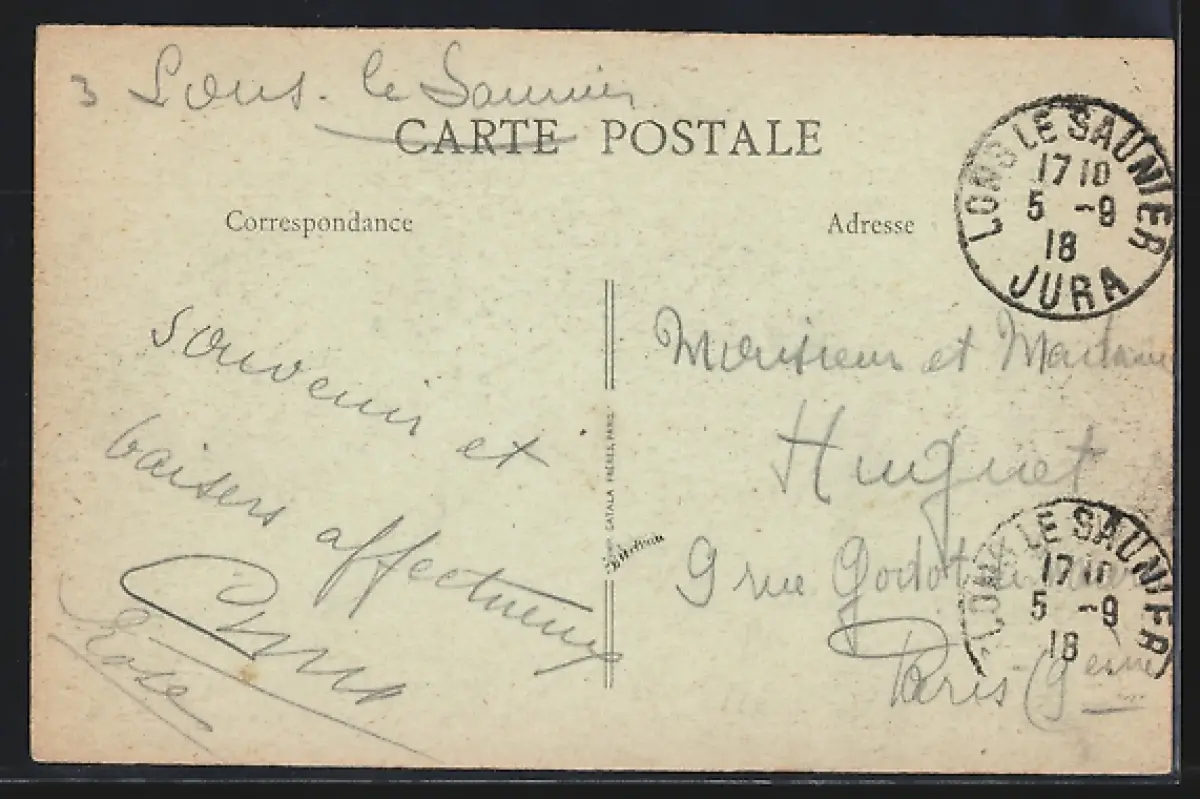 3 Lons-le Saunier
CARTE POSTALE
LONS LE SAUNIER
17 10
5 -9
18
JURA
Correspondance
Adresse
souvenir et
baisers affectueux
Rose
CATALA FRÈRES, PARIS
Monsieur et Madame
Huguet
9 rue Godot
Paris (9eme
LONS LE SAUNIER
17 10
5 -9
18